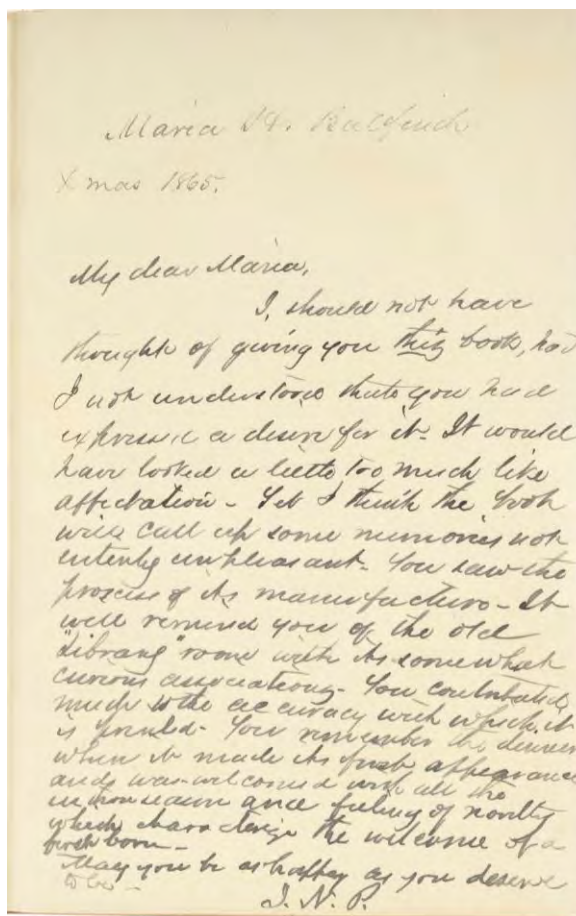 Maria H. Bulfinch
Xmas 1865.
My dear Maria,
I, should not have
thought of giving you this book, had
I not understood that you had
expressed a desire for it. It would
have looked a little too much like
affectation - Yet I think the book
will call up some memories not
entirely unpleasant. You saw the
process of its manufacture - It
will remind you of the old
"Library" room with its somewhat
curious associations. You contributed
much to the accuracy with which it
is printed. You remember the dinner
when it made its first appearance
and was welcomed with all the
enthusiasm and feeling of novelty
which characterize the welcome of a
first born -
May you be as happy as you deserve
to be -